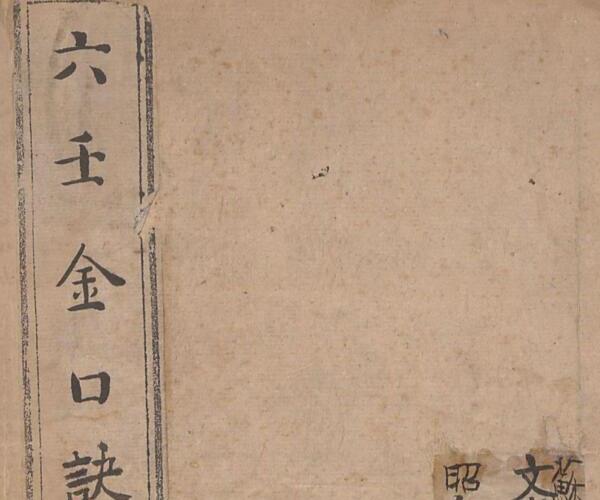 六壬金口訣
蘇
文
昭